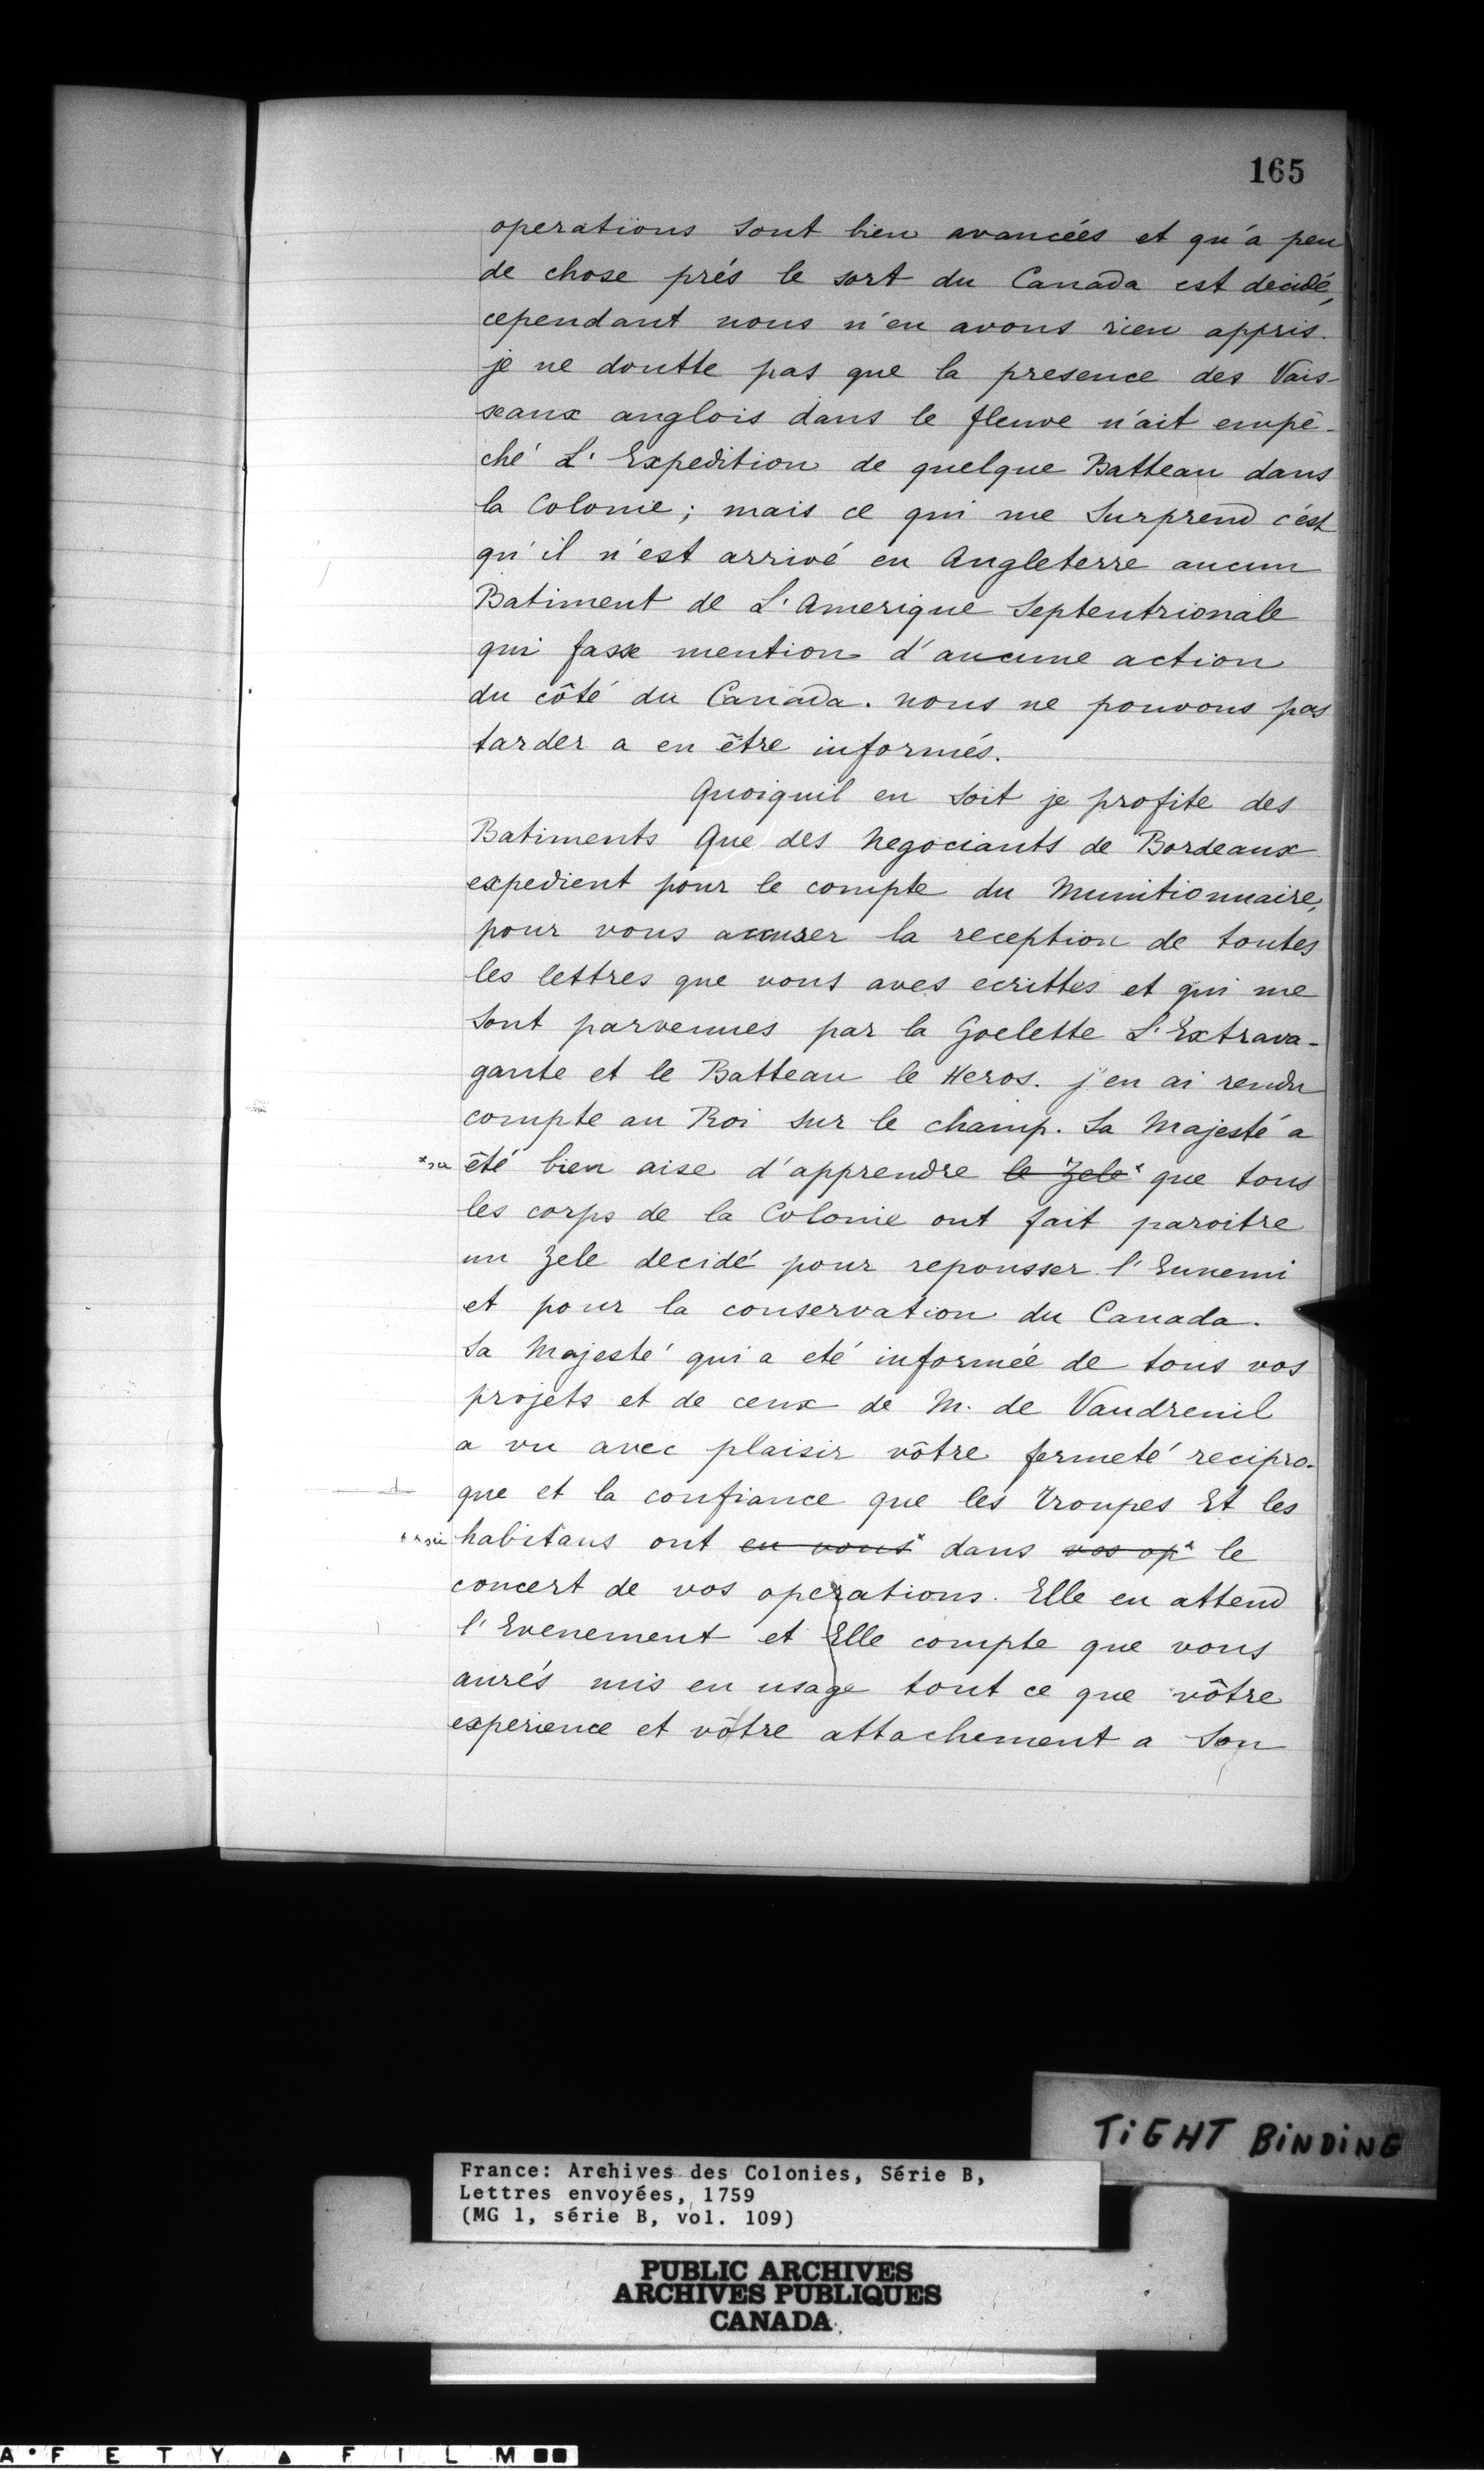 165
operations sont bien avancées et qu'a peu
de chose prés le sort du Canada est decidé,
cependant nous n'en avons rien appris.
je ne doutte pas que la presence des Vais-
seaux anglois dans le fleuve n'ait empê-
ché L'Expedition de quelque Batteau dans
la Colonie; mais ce qui me Surprend c'est
qu'il n'est arrivé en Angleterre aucun
Batiment de L'Amerique Septentrionale
qui fasse mention d'aucune action
du côté du Canada. nous ne pouvons pas
tarder a en être informés.
Quoiquil en soit je profite des
Batiments Que des Negociants de Bordeaux
expedient pour le compte du Munitionnaire,
pour vous accuser la reception de toutes
les lettres que vous aves ecrittes et qui me
sont parvenues par la Goelette L'Extrava-
gante et le Batteau le Heros. j'en ai rendu
compte au Roi sur le champ. Sa Majesté a
été bien aise d'apprendre le Zele x que tous
les corps de la Colonie ont fait paroitre
un Zele decidé pour repousser l'Ennemi
et pour la conservation du Canada.
Sa Majesté qui a eté informée de tous vos
projets et de ceux de M. de Vaudreuil
a vu avec plaisir vôtre fermeté recipro-
que et la confiance que les Troupes Et les
habitans ont en vous x dans vos op x le
concert de vos operations. Elle en attend
l'Evenement et Elle compte que vous
aurés mis en usage tout ce que vôtre
experience et vôtre attachement a Son
TiGHT BiNDiNG
France: Archives des Colonies, Série B,
Lettres envoyées, 1759
(MG 1, série B, vol. 109)
PUBLIC ARCHIVES
ARCHIVES PUBLIQUES
CANADA
A • F E T Y ▲ F I L M